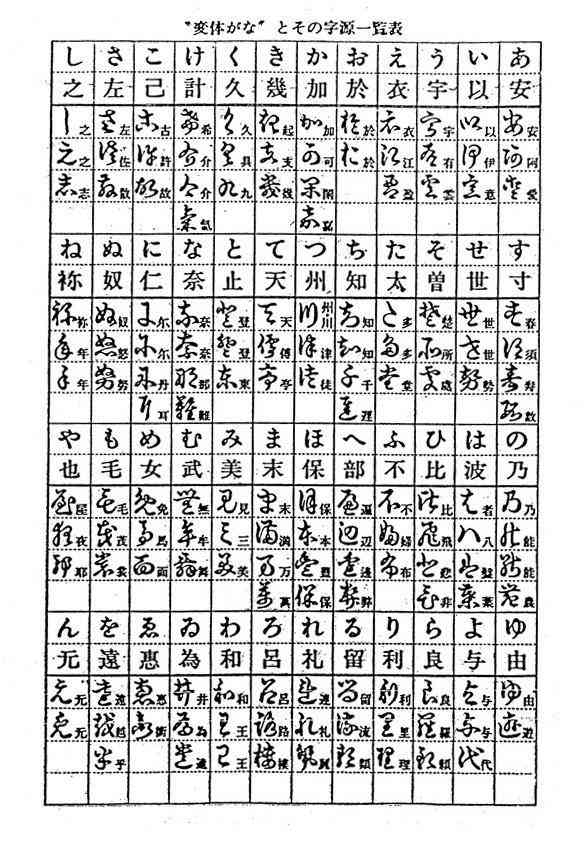 〝変体がな〟とその字源一覧表
あ い う え お か き く け こ さ し
安 以 宇 衣 於 加 幾 久 計 己 左 之
安 以 宇 衣 於 加 起 久 希 古 左 之
阿 伊 有 江 於 可 支 具 介 許 佐 之
愛 意 雲 盈 閑 幾 九 介 故 散 志
氣
す せ そ た ち つ て と な に ぬ ね
寸 世 曽 太 知 州 天 止 奈 仁 奴 祢
春 世 楚 多 知 州川 天 登 奈 尓 奴 祢
須 世 所 多 知 津 傳 登 奈 尓 怒 年
寿 勢 處 堂 千 徒 亭 東 那 丹 努 年
数 難 耳
の は ひ ふ へ ほ ま み む め も や
乃 波 比 不 部 保 末 美 武 女 毛 也
乃 者 比 不 遍 保 末 見 無 免 毛 屋
能 八 飛 婦 辺 本 満 三 牟 馬 茂 夜
能 盤 悲 布 邊 豊 万 美 舞 面 裳 耶
農 葉 非 弊 保 萬
ゆ よ ら り る れ ろ わ ゐ ゑ を ん
由 与 良 利 留 礼 呂 和 為 惠 遠 无
由 与 良 利 留 連 呂 和 井 惠 遠 无
遊 与 羅 里 流 礼 路 王 為 衛 越 无
代 頼 理 類 麗 楼 王 遠 乎